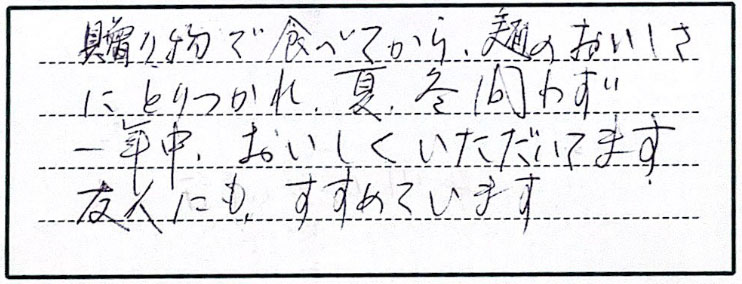 贈り物で食べてから、麺のおいしさ
にとりつかれ、夏、冬問わず
一年中、おいしくいただいてます
友人にも、すすめています